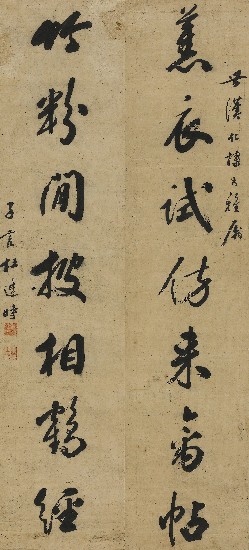 仁棣大雅屬
蕉衣試仿來禽帖
竹粉閒披相鶴經
子言杜